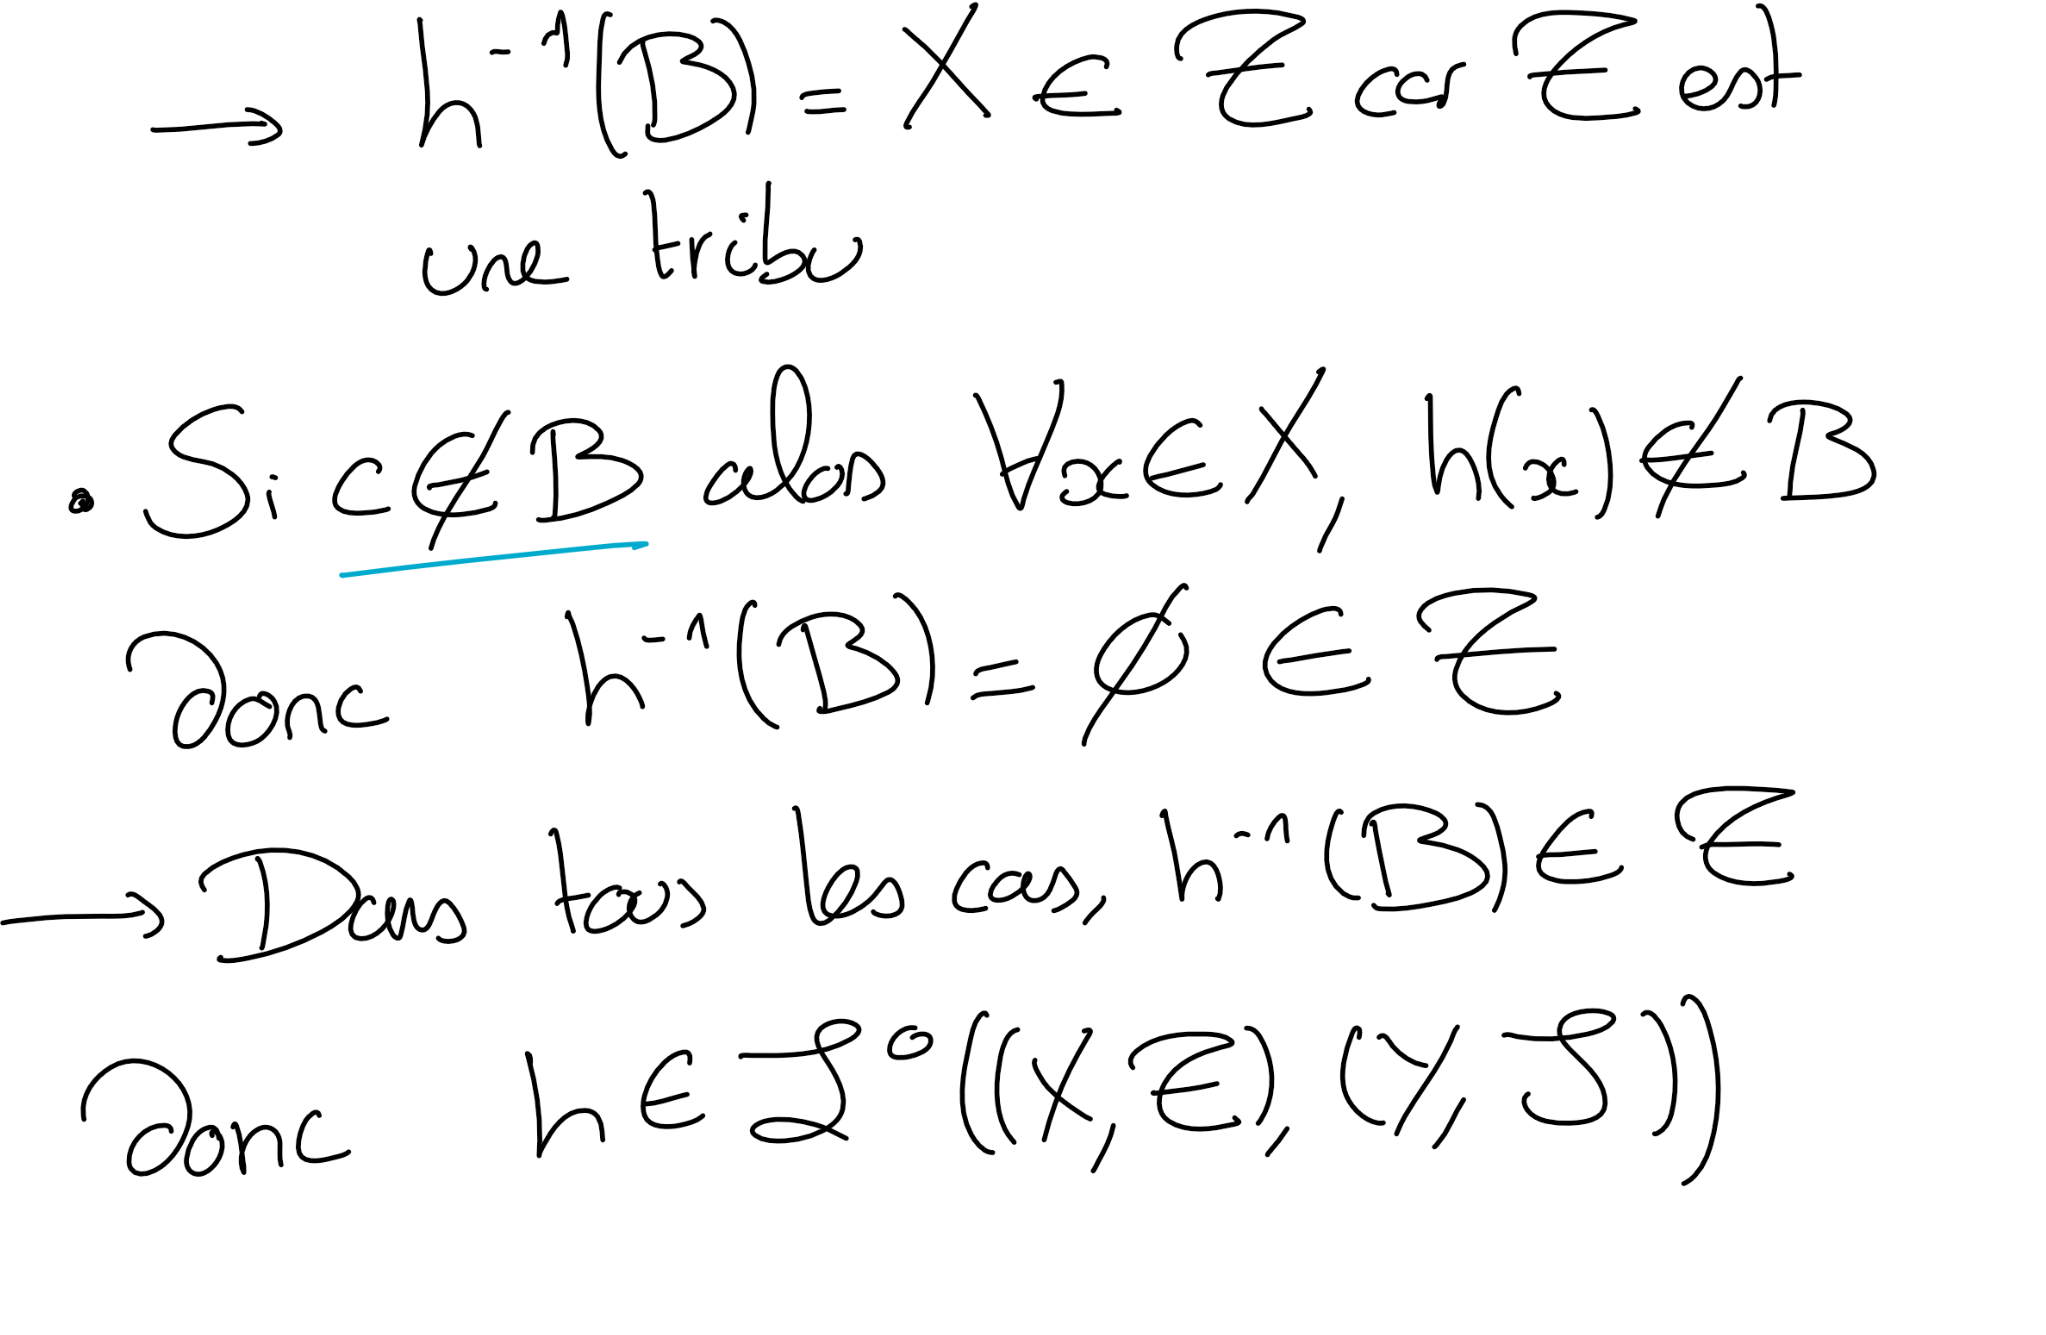 → h⁻¹(B) = X ∈ Ƶ car Ƶ est
une tribu
• Si c ∉ B alors ∀x ∈ X, h(x) ∉ B
Donc h⁻¹(B) = ∅ ∈ Ƶ
→ Dans tous les cas, h⁻¹(B) ∈ Ƶ
Donc h ∈ ℒ⁰((X, Ƶ), (Y, 𝒮))